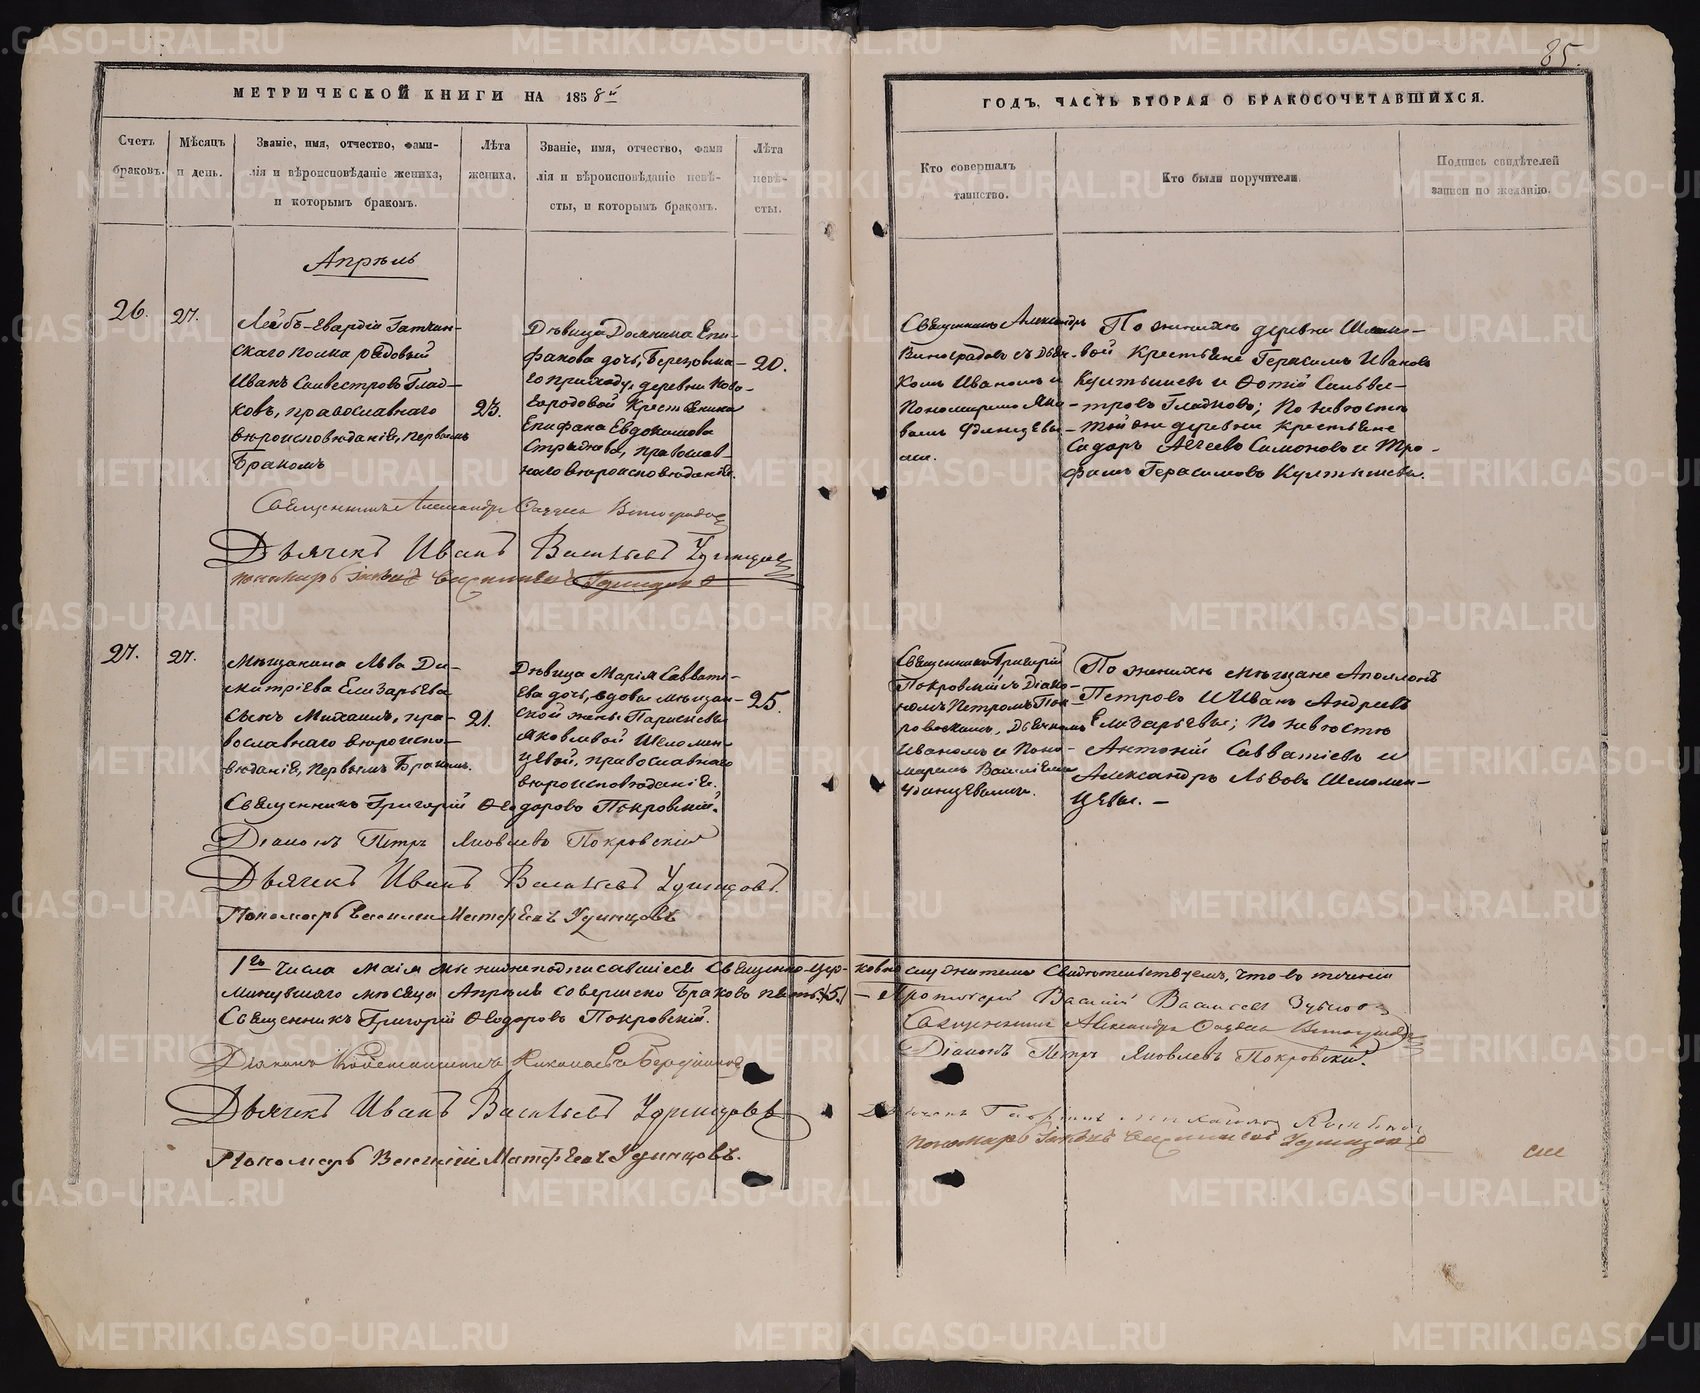 85.
МЕТРИЧЕСКОЙ КНИГИ НА 1858й
ГОДЪ, ЧАСТЬ ВТОРАЯ О БРАКОСОЧЕТАВШИХСЯ.
Счетъ браковъ.
Мѣсяцъ и день.
Званіе, имя, отчество, фами-
лія и вѣроисповѣданіе жениха,
и которымъ бракомъ.
Лѣта
жениха.
Званіе, имя, отчество, фами
лія и вѣроисповѣданіе невѣ-
сты, и которымъ бракомъ.
Лѣта
невѣ-
сты.
Кто совершалъ
таинство.
Кто были поручители
Подпись свидѣтелей
записи по желанію.
Апрѣль
26.
27.
Лейбъ-Гвардіи Гатчин-
скаго полка рядовый
Иванъ Силвестровъ Глад-
ковъ, православнаго
вѣроисповѣданія, первымъ
бракомъ
23.
Дѣвица Домника Епи-
фанова дочь, Березовска-
го приходу, деревни Ново-
городовой крестьянина
Епифана Евдокимова
православ-
наго вѣроисповѣданія.
20.
Священникъ Александръ
Виноградовъ съ дьяч-
комъ Иваномъ и
Пономаремъ Яко-
вомъ Удинцевы-
ми.
По женихѣ деревни
крестьяне Герасимъ Ивановъ
Култышевъ и Ѳотій Сильве-
стровъ Гладковъ; по невѣстѣ
той же деревни крестьяне
Сидоръ Симоновъ и Тро-
фимъ Герасимовъ Култышевы.
Священникъ Александръ Виноградовъ
Дьячекъ Иванъ Васильевъ Удинцовъ
Пономарь Іаковъ Удинцовъ
27.
27.
Мѣщанина Льва Ди-
митріева Елизарьева
сынъ Михаилъ, пра-
вославнаго вѣроиспо-
вѣданія, первымъ бракомъ.
21.
Дѣвица Марія Саввати-
ева дочь, вдовы мѣщан-
ской жены
Яковлевой Шеломен-
цевой, православнаго
вѣроисповѣданія.
25.
Священникъ Григорій
Покровскій съ Діако-
номъ Петромъ Пок-
ровскимъ, Дьячкомъ
Иваномъ и Поно-
маремъ Василіемъ
Удинцевыми.
По женихѣ мѣщане Аполлонъ
Петровъ и Иванъ Андреевъ
Елизарьевы; по невѣстѣ
Антоній Савватіевъ и
Александръ Львовъ Шеломен-
цевы. —
Священникъ Григорій Ѳеодоровъ Покровскій.
Діаконъ Петръ Яковлевъ Покровскій
Дьячекъ Иванъ Васильевъ Удинцовъ
Пономарь Василій Матфеевъ Удинцовъ
1го числа Маія мы нижеподписавшіеся священно-цер-ковно служители свидѣтельствуемъ, что въ теченіи
минувшаго мѣсяца Апрѣля совершено браковъ пять /5./ — Протоіерей Василій Васильевъ
Священникъ Григорій Ѳеодоровъ Покровскій.
Священникъ Александръ Виноградовъ
Діаконъ Петръ Яковлевъ Покровскій.
Діаконъ Николаевъ
Дьячекъ Иванъ Васильевъ Удинцовъ
Пономарь Іаковъ Удинцовъ
Пономарь Василій Матфеевъ Удинцовъ.
METRIKI.GASO-URAL.RU